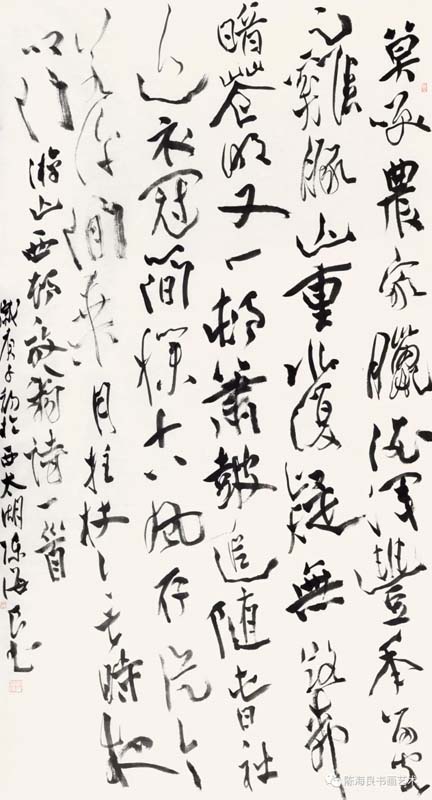 莫咲農家臘酒渾豐年留客
足雞豚山重水復疑無路柳
暗花明又一村簫皷追随春社
近衣冠簡樸古風存從今
若許閒乘月拄杖無時夜
叩門 游山西村放翁詩一首
歲庚子初於西太湖陳海良書
陈海良书画艺术